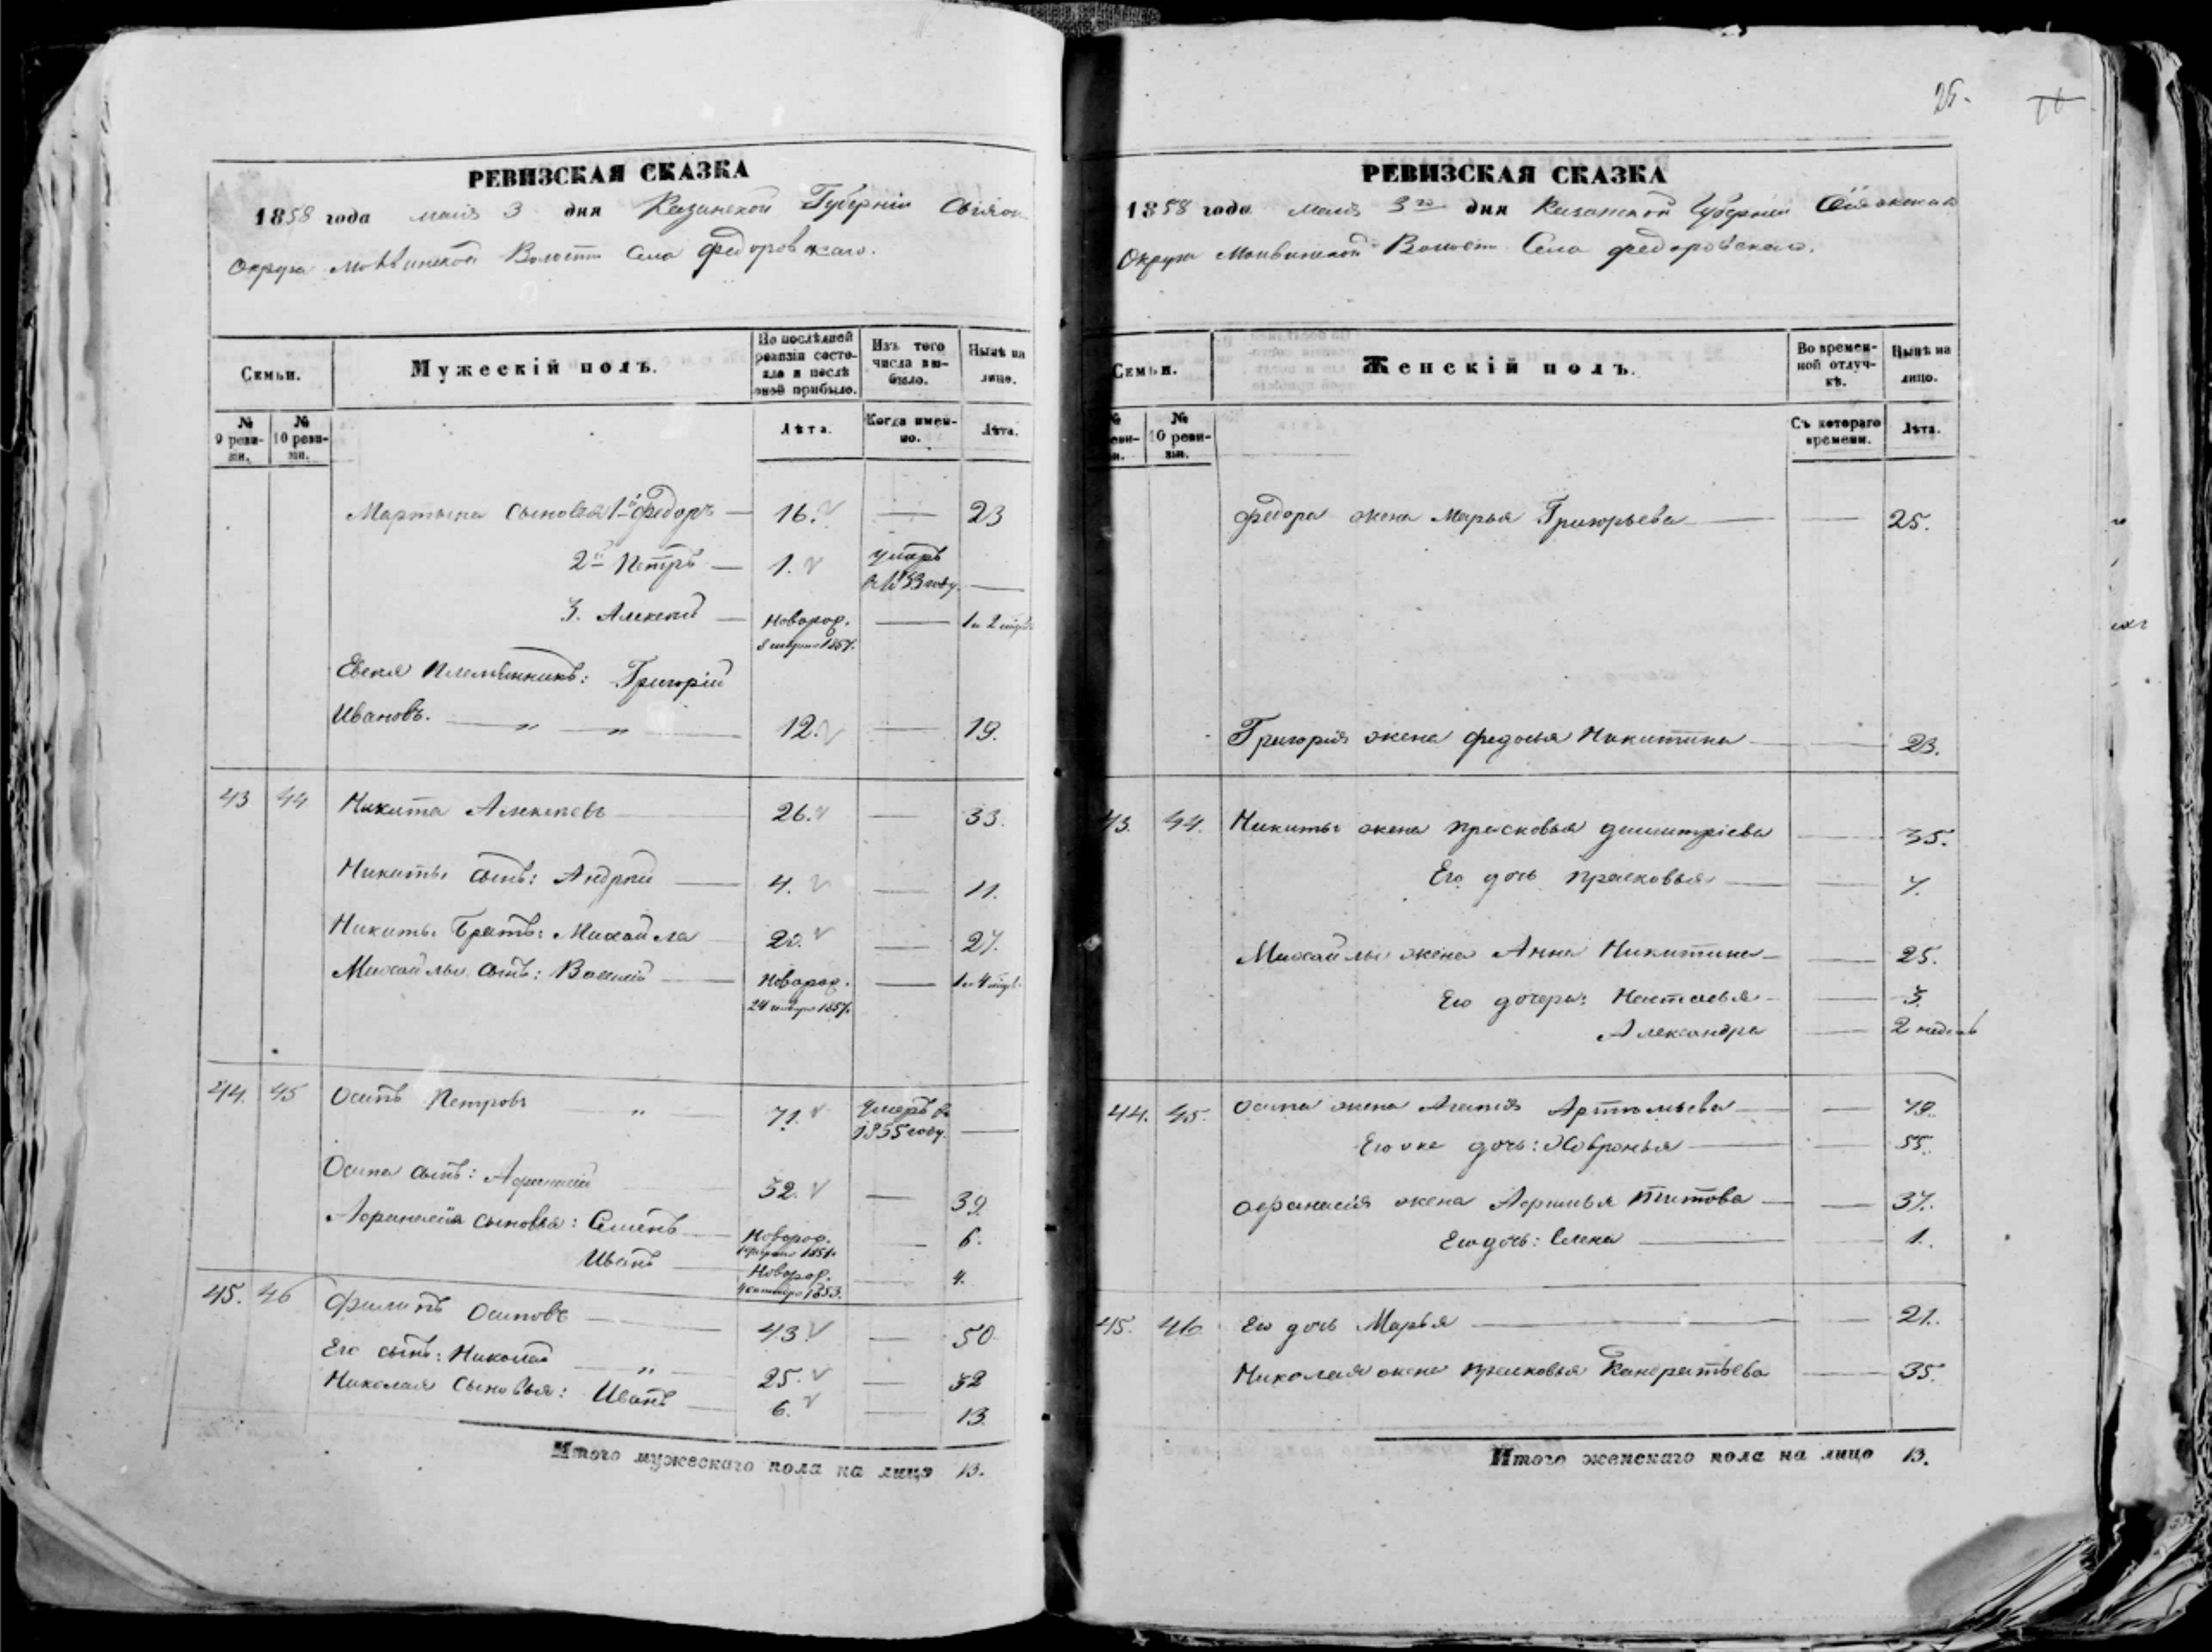 РЕВИЗСКАЯ СКАЗКА
1858 года маія 3 дня Казанской Губерніи Свіяж
Округа Волости Села Федоровскаго.
Семьи.
Мужескій полъ.
По послѣдней ревизіи состояло и послѣ оной прибыло.
Изъ того числа выбыло.
Нынѣ на лице.
№ 9 ревизіи.
№ 10 ревизіи.
Лѣта.
Когда именно.
Лѣта.
Мартына сыновья 1й Федоръ 16. 23
2й Петръ 1. умеръ
в 1853 году.
3. Алексѣй Новорож. 1 и 2
1857.
Евсея племянникъ: Григорій
Ивановъ. 12. 19.
43 44 Никита Алексѣевъ 26. 33.
Никиты сынъ: Андрей 4. 11.
Никиты братъ: Михайла 20. 27.
Михайлы сынъ: Василій Новорож. 1 и 4
24 1857.
44. 45 Осипъ Петровъ 71. Умеръ въ
1855 году.
Осипа сынъ: Афанасій 32. 39.
Афанасія сыновья: Семенъ Новорож. 6.
1851.
Иванъ Новорож. 4.
4 октября 1853.
45. 46 Филипъ Осиповъ 43. 50.
Его сынъ: Николай 25. 32
Николая сыновья: Иванъ 6. 13.
Итого мужескаго пола на лицо 13.
РЕВИЗСКАЯ СКАЗКА
1858 года маія 3го дня Казанской Губерніи
Округи Волости Села Федоровскаго.
Семьи.
Женскій полъ.
Во временной отлучкѣ.
Нынѣ на лицо.
№ 10 ревизіи.
Съ котораго времени.
Лѣта.
Федора жена Марья Григорьева 25.
Григорія жена Федосья Никитина 23.
43. 44. Никиты жена Прасковья Димитріева 35.
Его дочь Прасковья 7.
Михайлы жена Анна Никитина 25.
Его дочери: Настасья 3.
Александра 2 недель
44. 45. Осипа жена Агапія Артемьева
Его же дочь: Хавронья 55.
Афанасія жена Афимья Титова 37.
Его дочь: Елена 1.
45. 46 Его дочь Марья 21.
Николая жена Прасковья Кандратьева 35.
Итого женскаго пола на лицо 13.